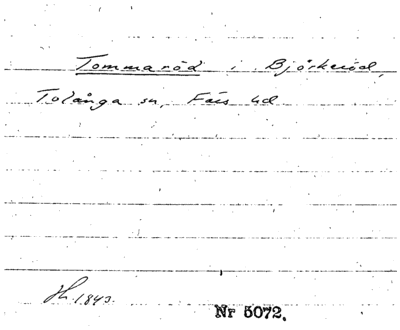 Tommaröd i Björkeröd,
Tolånga sn, Färs hd
Hh 1843.
Nr 5072.